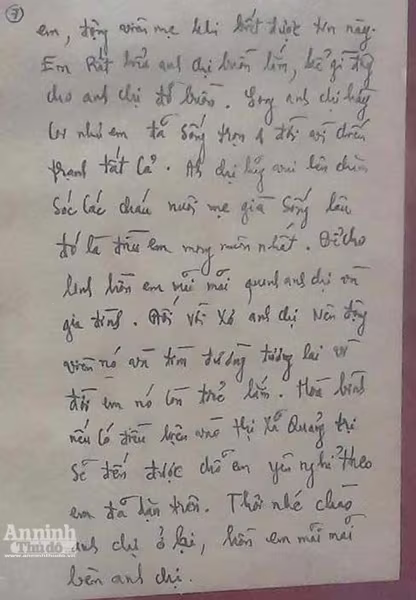 7
em, động viên mẹ khi biết được tin này.
Em rất hiểu anh chị buồn lắm, kể gì
cho anh chị đỡ buồn. Song anh chị hãy
coi như em đã sống trọn đời vì chiến
tranh tất cả. Anh chị hãy vui lên chăm
sóc các cháu nuôi mẹ già sống lâu
đó là điều em mong muốn nhất. Để cho
linh hồn em mãi mãi quanh anh chị và
gia đình. Đối với Xơ anh chị nên động
viên nó và tìm đường tương lai vì
đời em nó còn trẻ lắm. Hoà bình
nếu có điều kiện vào thị xã Quảng Trị
sẽ đến được chỗ em yên nghỉ theo
em đã dặn trên. Thôi nhé chào
anh chị ở lại, hồn em mãi mãi
bên anh chị.
An ninh
Thủ đô